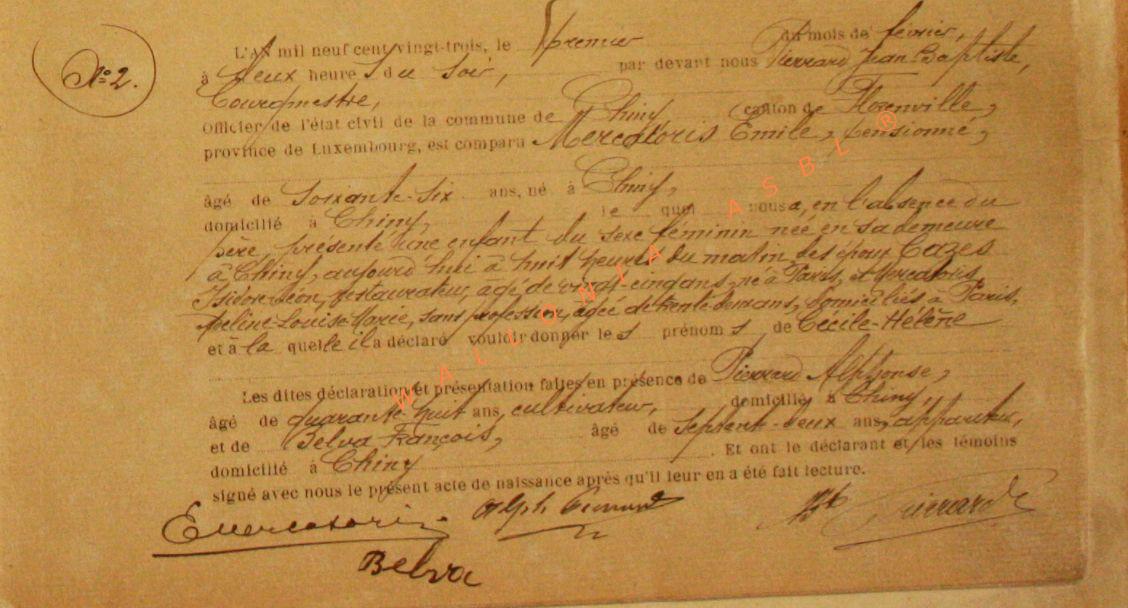 N° 2.
L'AN mil neuf cent vingt-trois, le premier du mois de février,
à deux heures du soir, par devant nous Pierrard Jean-Baptiste,
Bourgmestre,
Officier de l'état civil de la commune de Chiny canton de Florenville,
province de Luxembourg, est comparu Mercatoris Emile, pensionné,
âgé de soixante-six ans, né à Chiny,
domicilié à Chiny, le quel nous a, en l'absence du
père, présenté une enfant du sexe féminin née en sa demeure
à Chiny, aujourd'hui à huit heures du matin des époux Cazes
Isidore-Léon, restaurateur, âgé de vingt-cinq ans, né à Paris, et Mercatoris
Aveline-Louise-Marie, sans profession, âgée de trente-deux ans, domiciliés à Paris,
et à la quelle il a déclaré vouloir donner les prénoms de Cécile-Hélène
Les dites déclaration et présentation faites en présence de Pierrard Alphonse,
âgé de quarante-huit ans, cultivateur, domicilié à Chiny,
et de Belva François, âgé de septante-deux ans, appariteur,
domicilié à Chiny. Et ont le déclarant et les témoins
signé avec nous le présent acte de naissance après qu'il leur en a été fait lecture.
E Mercatoris Alph Pierrard JB Pierrard
Belva
WALLONIA ASBL ®